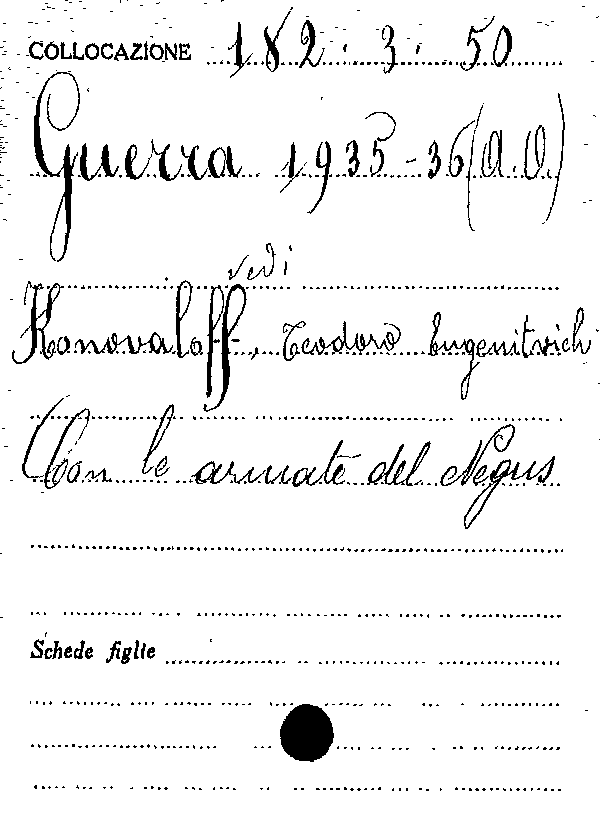 COLLOCAZIONE 182. 3. 50
Guerra 1935-36 (A.O.)
vedi
Konovaloff, Teodoro Eugenitvich
Con le armate del Negus
Schede figlie